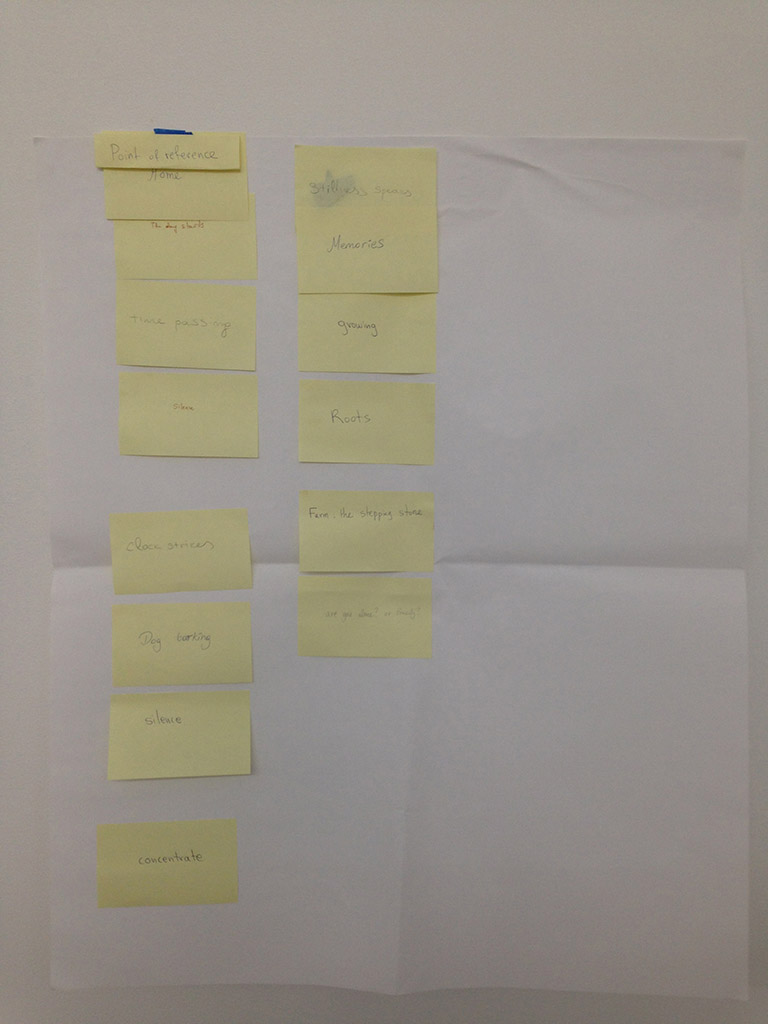 Point of reference
Home
the day starts
time passing
silence
Clock strikes
Dog barking
silence
concentrate
Stillness speaks
Memories
growing
Roots
Farm: the stepping stone
are you alone? or